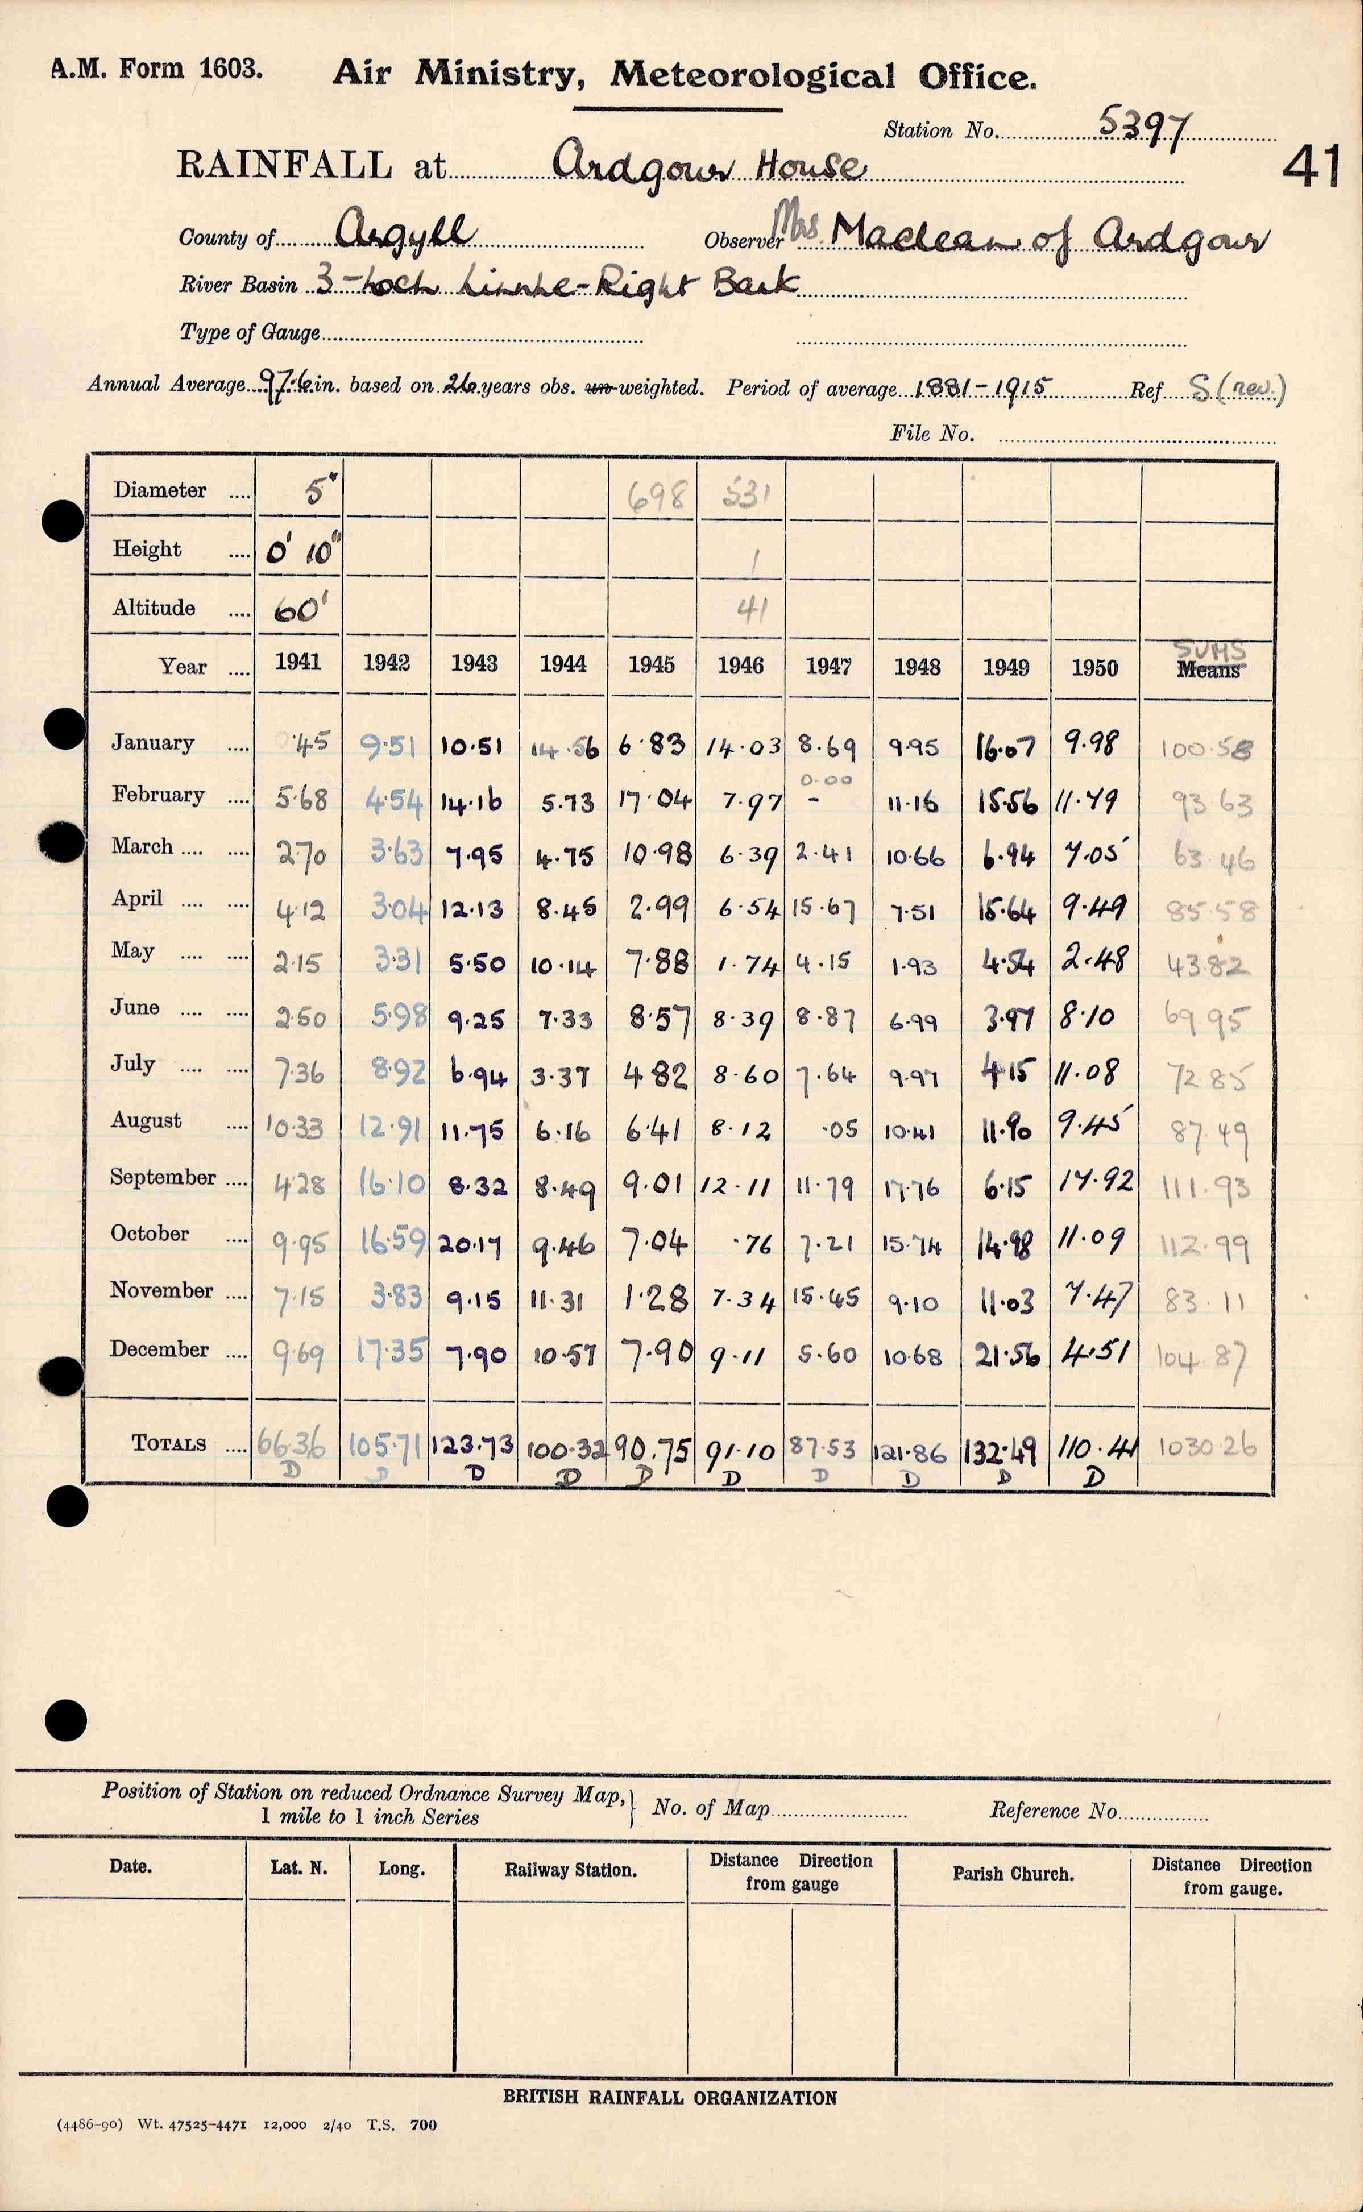 A.M. Form 1603. Air Ministry, Meteorological Office.
Station No. 5397
41
RAINFALL at Ardgour House
County of Argyll Observer Mrs. Maclean of Ardgour
River Basin 3-Loch Linnhe-Right Bank
Type of Gauge
Annual Average 97.6 in. based on 26 years obs. un-weighted. Period of average 1881-1915 Ref S (rev.)
File No.
Diameter .... 5" 698 531
Height .... 0' 10" 1
Altitude .... 60' 41
SUMS
Year .... 1941 1942 1943 1944 1945 1946 1947 1948 1949 1950 Means
January .... 0.45 9.51 10.51 14.56 6.83 14.03 8.69 9.95 16.07 9.98 100.58
0.00
February .... 5.68 4.54 14.16 5.73 17.04 7.97 - 11.16 15.56 11.79 93.63
March .... .... 2.70 3.63 7.95 4.75 10.98 6.39 2.41 10.66 6.94 7.05 63.46
April .... .... 4.12 3.04 12.13 8.45 2.99 6.54 15.67 7.51 15.64 9.49 85.58
May .... .... 2.15 3.31 5.50 10.14 7.88 1.74 4.15 1.93 4.54 2.48 43.82
June .... .... 2.50 5.98 9.25 7.33 8.57 8.39 8.87 6.99 3.97 8.10 69.95
July .... .... 7.36 8.92 6.94 3.37 4.82 8.60 7.64 9.97 4.15 11.08 72.85
August .... 10.33 12.91 11.75 6.16 6.41 8.12 .05 10.41 11.90 9.45 87.49
September .... 4.28 16.10 8.32 8.49 9.01 12.11 11.79 17.76 6.15 17.92 111.93
October .... 9.95 16.59 20.17 9.46 7.04 .76 7.21 15.74 14.98 11.09 112.99
November .... 7.15 3.83 9.15 11.31 1.28 7.34 15.45 9.10 11.03 7.47 83.11
December .... 9.69 17.35 7.90 10.57 7.90 9.11 5.60 10.68 21.56 4.51 104.87
TOTALS .... 66.36 105.71 123.73 100.32 90.75 91.10 87.53 121.86 132.49 110.41 1030.26
D D D D D D D D D D
Position of Station on reduced Ordnance Survey Map, } No. of Map Reference No.
1 mile to 1 inch Series
Date. Lat. N. Long. Railway Station. Distance Direction from gauge Parish Church. Distance Direction from gauge.
BRITISH RAINFALL ORGANIZATION
(4486-90) Wt. 47525-4471 12,000 2/40 T.S. 700